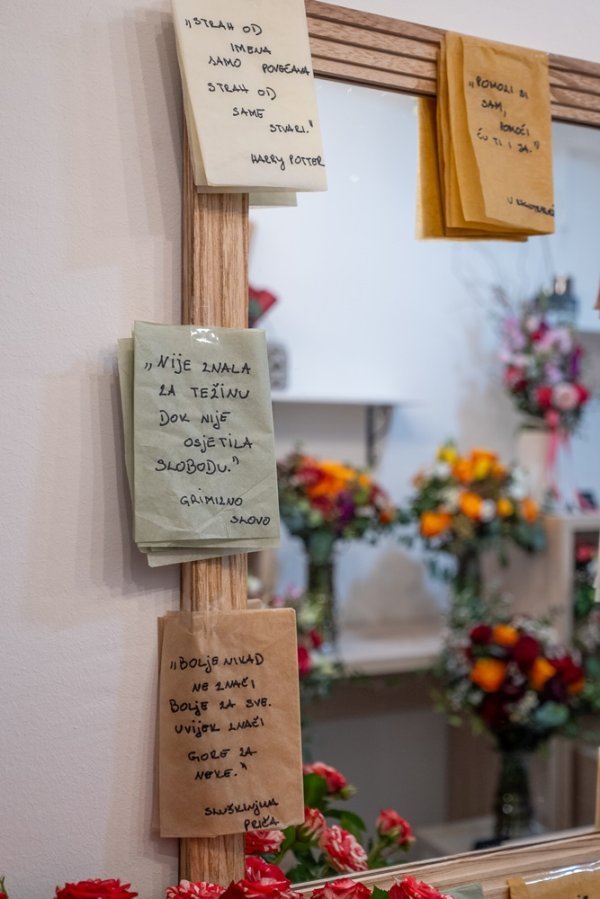 „STRAH OD
IMENA
SAMO POVEĆAVA
STRAH OD
SAME
STVARI."
HARRY POTTER
„POMOLI SI
SAM,
POMOĆI
ĆU TI I JA."
U
„NIJE ZNALA
ZA TEŽINU
DOK NIJE
OSJETILA
SLOBODU."
GRIMIZNO
SLOVO
„BOLJE NIKAD
NE ZNAČI
BOLJE ZA SVE.
UVIJEK ZNAČI
GORE ZA
NEKE."
SLUŠKINJINA
PRIČA